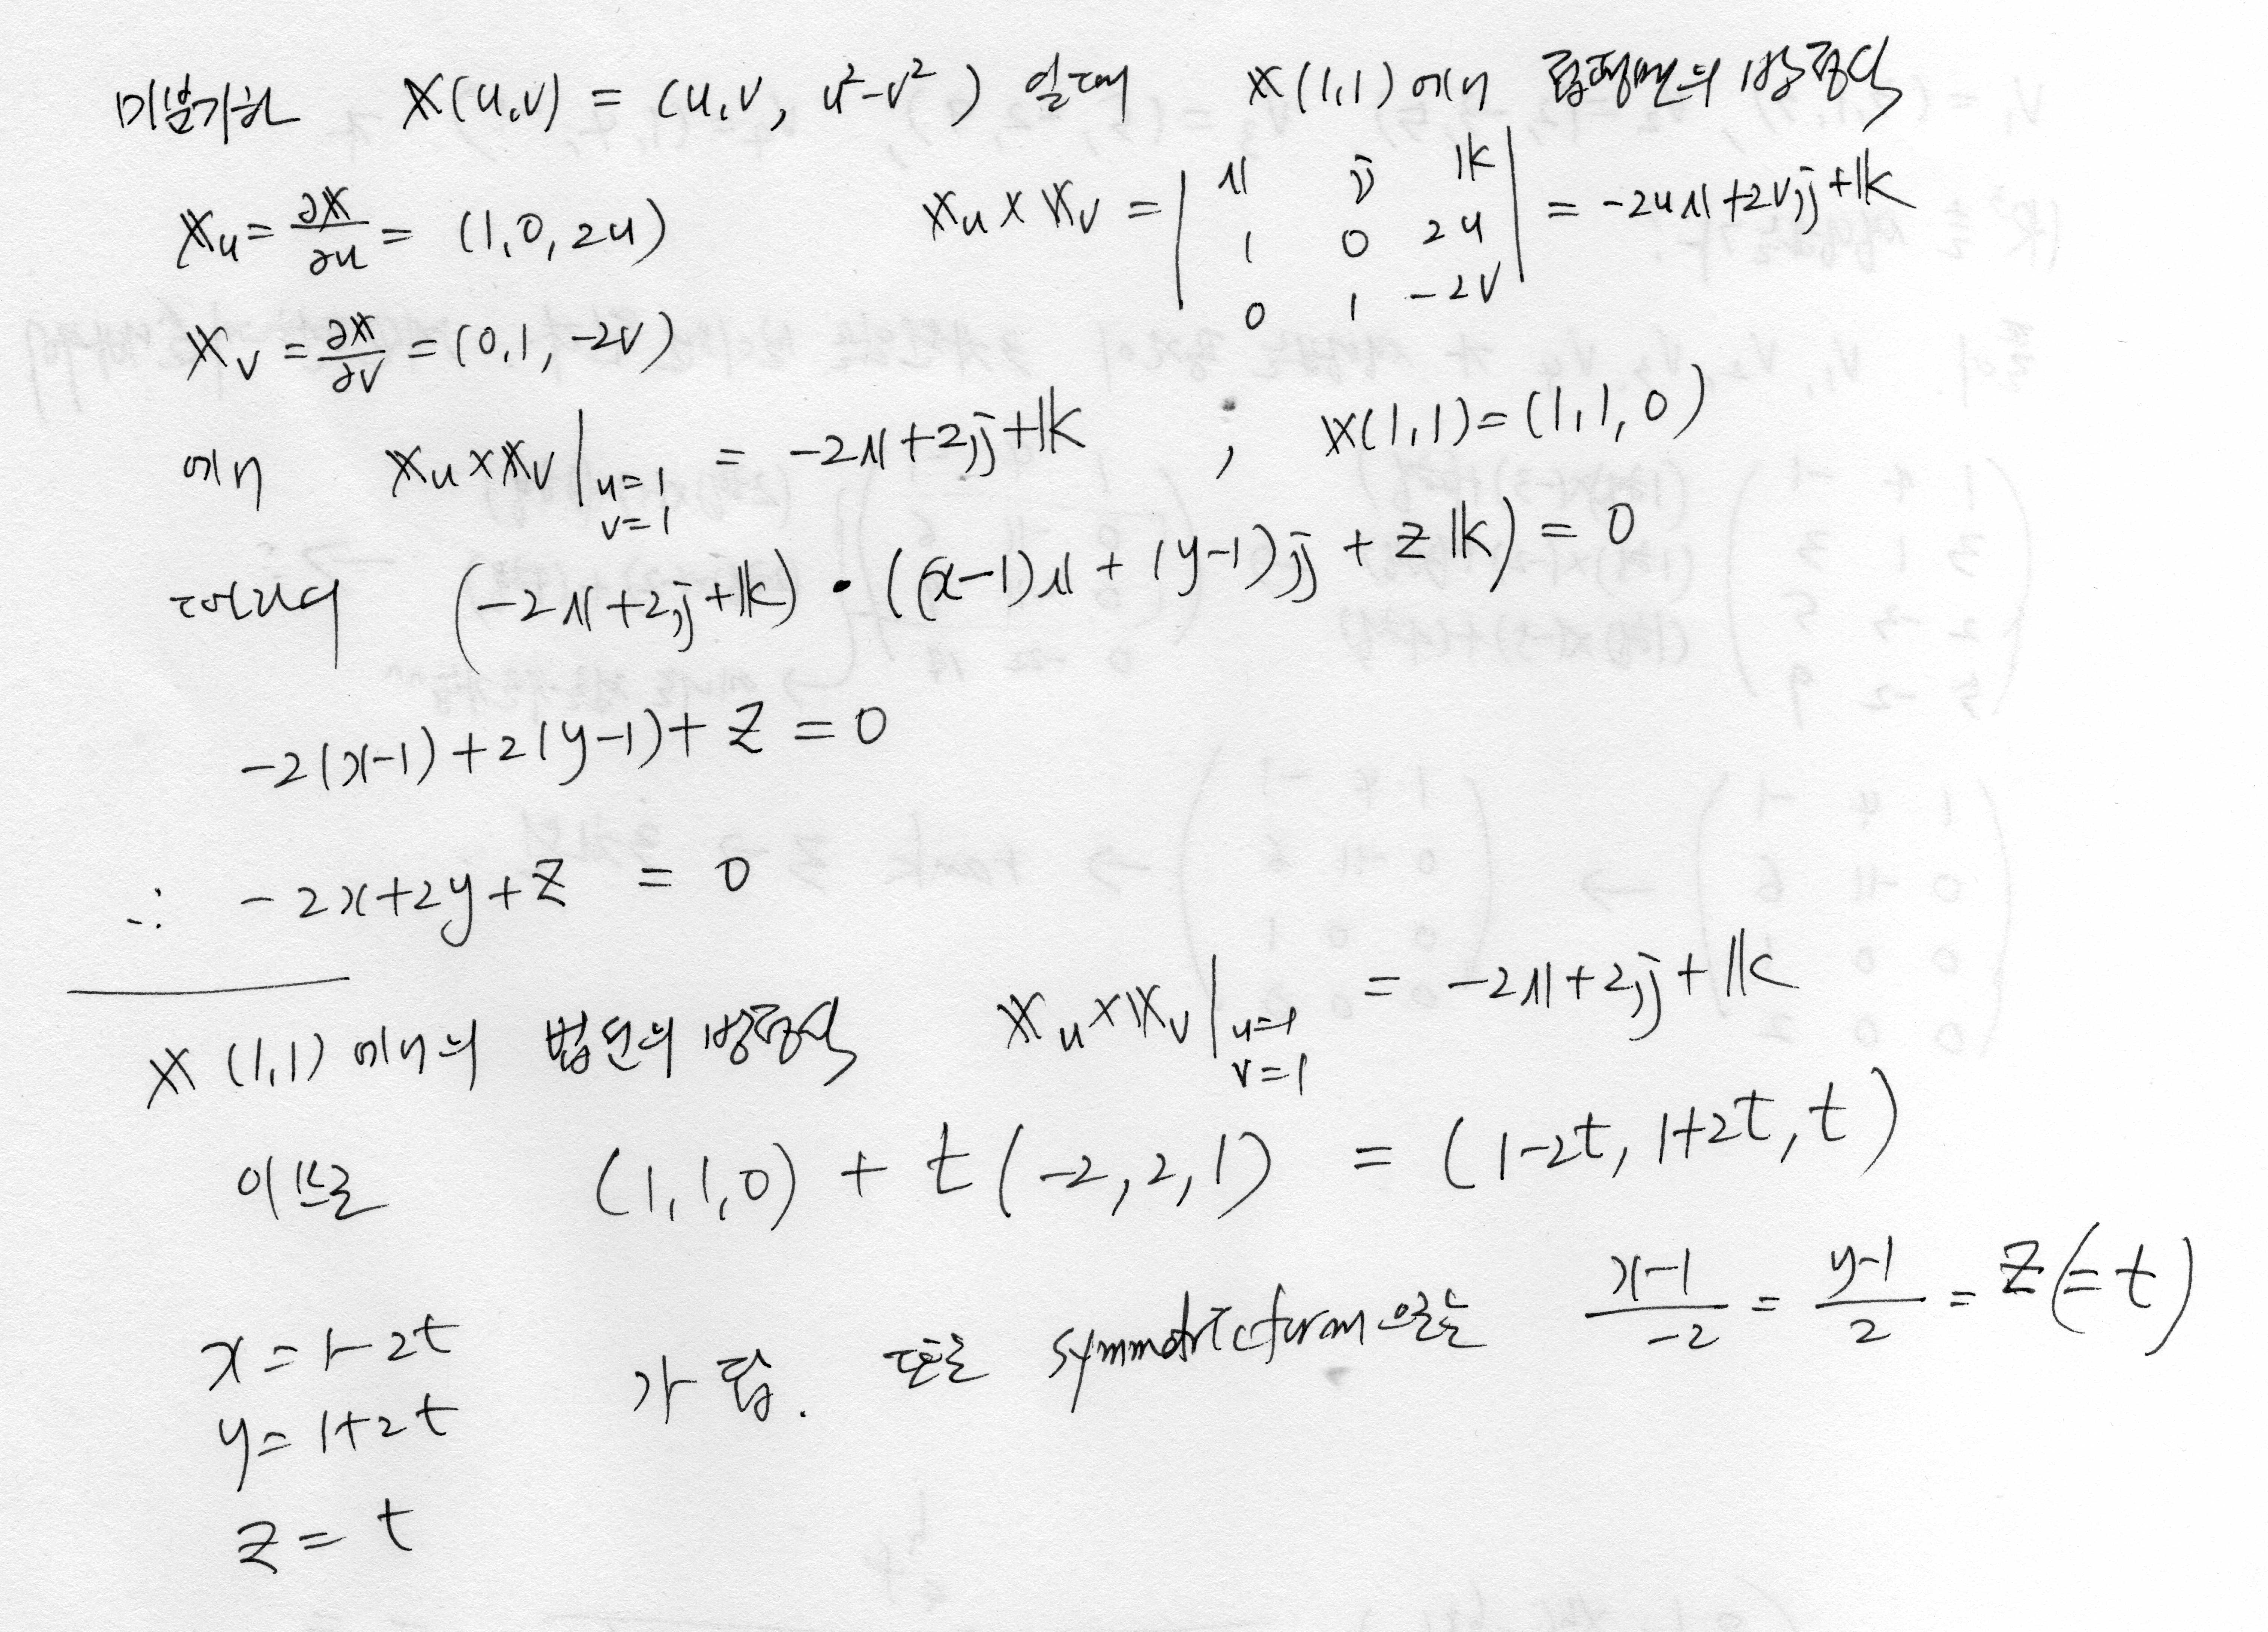 미분기하 𝕏(u,v) = (u,v, u²-v²) 일때 𝕏(1,1)에서 접평면의 방정식
𝕏u = ∂𝕏/∂u = (1,0,2u)
𝕏u × 𝕏v = | 𝕚 𝕛 𝕜
1 0 2u
0 1 -2v | = -2u𝕚+2v𝕛+𝕜
𝕏v = ∂𝕏/∂v = (0,1,-2v)
에서 𝕏u×𝕏v | u=1 v=1 = -2𝕚+2𝕛+𝕜 , 𝕏(1,1)=(1,1,0)
따라서 (-2𝕚+2𝕛+𝕜) • ((x-1)𝕚 + (y-1)𝕛 + z𝕜) = 0
-2(x-1)+2(y-1)+z = 0
∴ -2x+2y+z = 0
𝕏(1,1)에서의 법선의 방정식 𝕏u×𝕏v | u=1 v=1 = -2𝕚+2𝕛+𝕜
이므로 (1,1,0) + t(-2,2,1) = (1-2t, 1+2t, t)
x=1-2t
y=1+2t
z=t
가 답. 또는 symmetric form으로는 (x-1)/-2 = (y-1)/2 = z(=t)